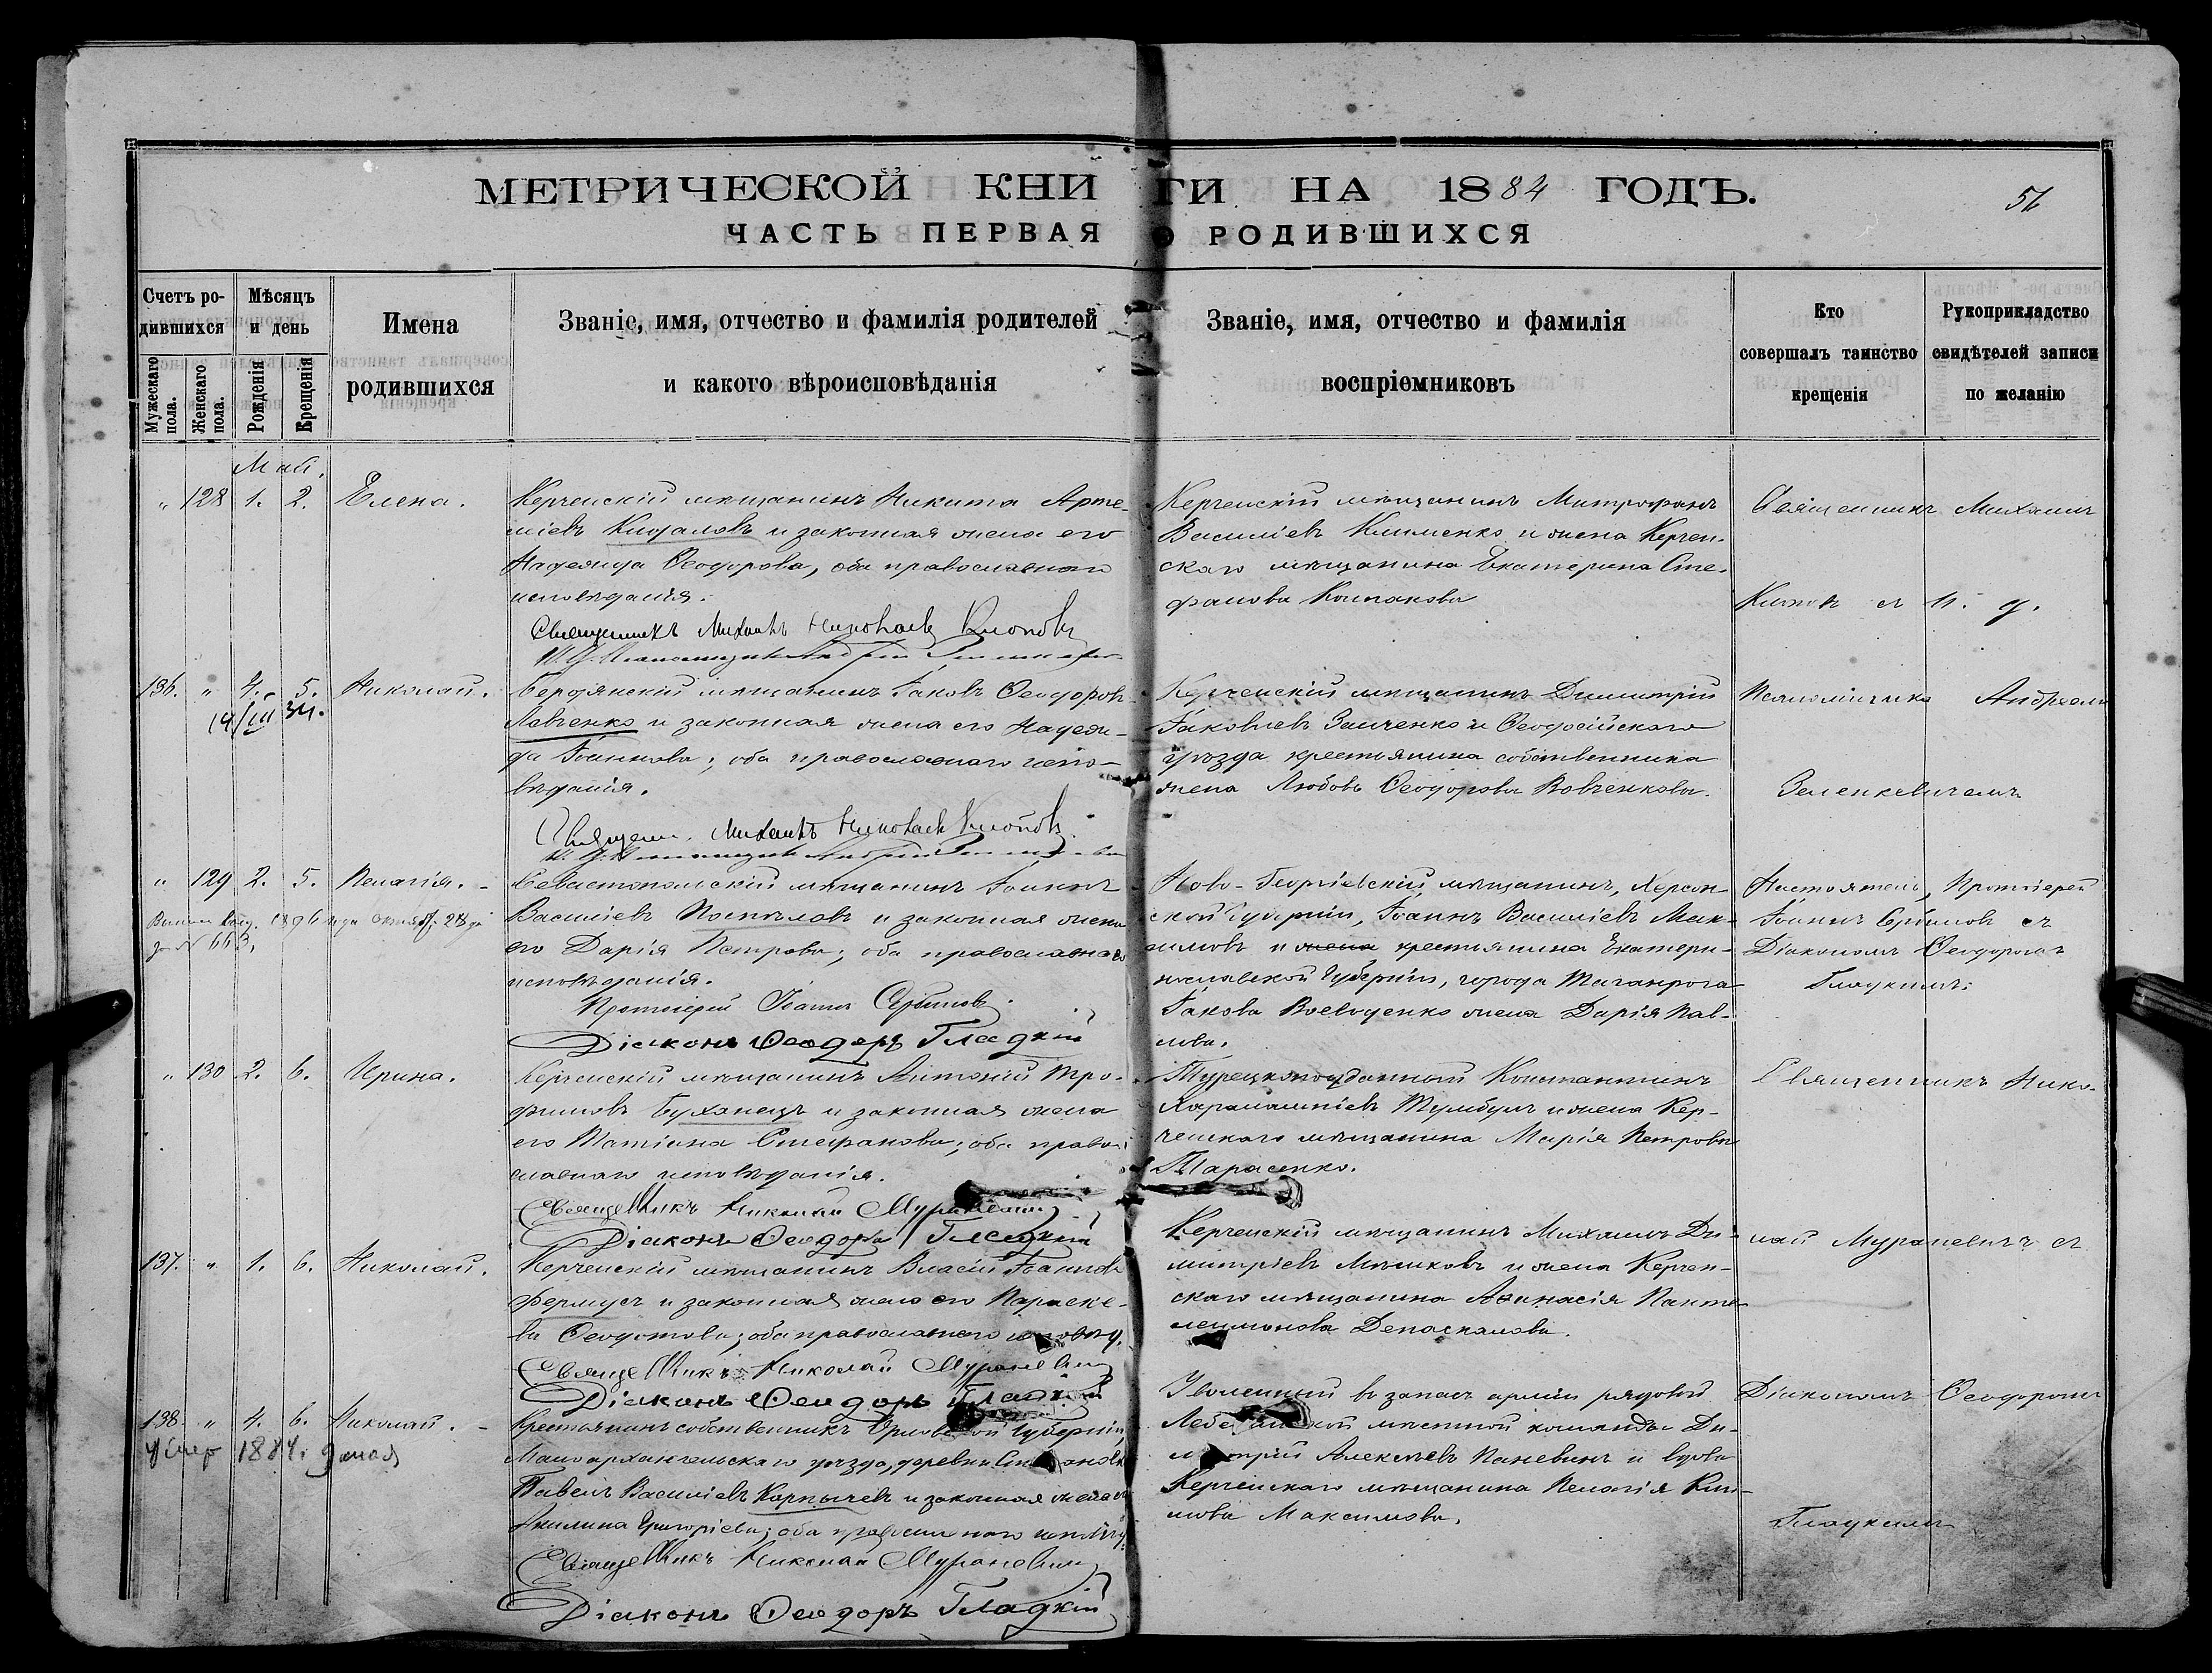 МЕТРИЧЕСКОЙ КНИГИ НА 1884 ГОДЪ.
56
ЧАСТЬ ПЕРВАЯ О РОДИВШИХСЯ
Счетъ родившихся
Мужескаго пола.
Женскаго пола.
Мѣсяцъ и день
Рожденія
Крещенія
Имена родившихся
Званіе, имя, отчество и фамилія родителей
и какого вѣроисповѣданія
Званіе, имя, отчество и фамилія
воспріемниковъ
Кто
совершалъ таинство
крещенія
Рукоприкладство
свидѣтелей записи
по желанію
Май.
" 128 1. 2. Елена.
Керченскій мѣщанинъ Никита Арте-
міевъ и законная жена его
Надежда Ѳеодорова, оба православнаго
исповѣданія.
Священникъ Михаилъ Николаевъ Клоповъ
Керченскій мѣщанинъ Митрофанъ
Василіевъ Клименко и жена Керчен-
скаго мѣщанина Екатерина Сте-
фанова
Священникъ Михаилъ
136. " 4. 5. Николай.
Бердянскій мѣщанинъ Іаковъ Ѳеодоровъ
Левченко и законная жена его Надеж-
да Іоаннова; оба православнаго испо-
вѣданія.
Священ. Михаилъ Николаевъ Клоповъ
Керченскій мѣщанинъ Димитрій
Іаковлевъ Заиченко и Ѳеодосійскаго
уѣзда крестьянина собственника
жена Любовь Ѳеодорова Вовченкова.
Псаломщика Андреемъ
Зеленкевичемъ
" 129 2. 5. Пелагія.
№ 663,
Севастопольскій мѣщанинъ Іоаннъ
Василіевъ Поспѣловъ и законная жена
его Дарія Петрова; оба православнаго
исповѣданія.
Протоіерей Іоаннъ Сербиновъ.
Діаконъ Ѳеодоръ Гладкій
Ново-Георгіевскій мѣщанинъ, Херсон-
ской Губерніи, Іоаннъ Василіевъ Мак-
симовъ и жена крестьянина Екатери-
нославской Губерніи, города Таганрога
Іакова жена Дарія Пав-
лова.
Настоятель, Протоіерей
Іоаннъ Сербиновъ съ
Діакономъ Ѳеодоромъ
Гладкимъ.
" 130 2. 6. Ирина.
Керченскій мѣщанинъ Антоній Тро-
фимовъ Буханецъ и законная жена
его Татіана Стефанова; оба право-
славнаго исповѣданія.
Священникъ Николай Мураневичъ
Діаконъ Ѳеодоръ Гладкій
Турецкоподданный Константинъ
Харалампіевъ и жена Кер-
ченскаго мѣщанина Марія Петрова
Тарасенко.
Священникъ Нико-
137. " 1. 6. Николай.
Керченскій мѣщанинъ Власій Іоанновъ
Фермусъ и законная жена его Параске-
ва Ѳеодотова; оба православнаго
Священникъ Николай Мураневичъ
Діаконъ Ѳеодоръ Гладкій
Керченскій мѣщанинъ Михаилъ Ди-
митріевъ и жена Керчен-
скаго мѣщанина Аѳанасія Панте-
леимонова
лай Мураневичъ съ
138. " 4. 6. Николай.
умер 1884. 9 мая
Крестьянинъ собственникъ Орловской Губерніи,
Малоархангельскаго уѣзда, деревни
Павелъ Василіевъ Карпычевъ и законная жена его
Акилина Григоріева; оба православнаго
Священникъ Николай Мураневичъ
Діаконъ Ѳеодоръ Гладкій
Уволенный въ запасъ арміи рядовой
мѣстной команды Ди-
митрій Алексѣевъ Паневинъ и вдова
Керченскаго мѣщанина Пелагія
Максимова.
Діакономъ Ѳеодоромъ
Гладкимъ